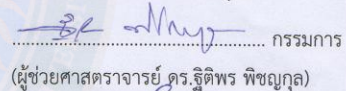 ........................................ กรรมการ
(ผู้ช่วยศาสตราจารย์ ดร.ฐิติพร พิชญกุล)